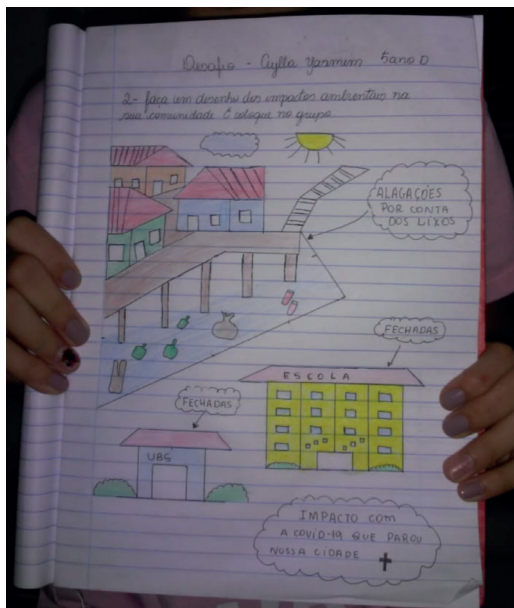 Desafio - Aylla Yasmim 5 ano D
2- faça um desenho dos impactos ambientais na
sua comunidade E coloque no grupo.
ALAGAÇÕES
POR CONTA
DOS LIXOS
FECHADAS
ESCOLA
FECHADAS
UBS
IMPACTO COM
A COVID-19 QUE PAROU
NOSSA CIDADE